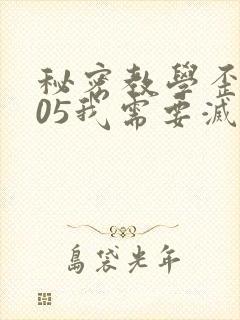 秘密教學歪
05我需要滅
島袋光年